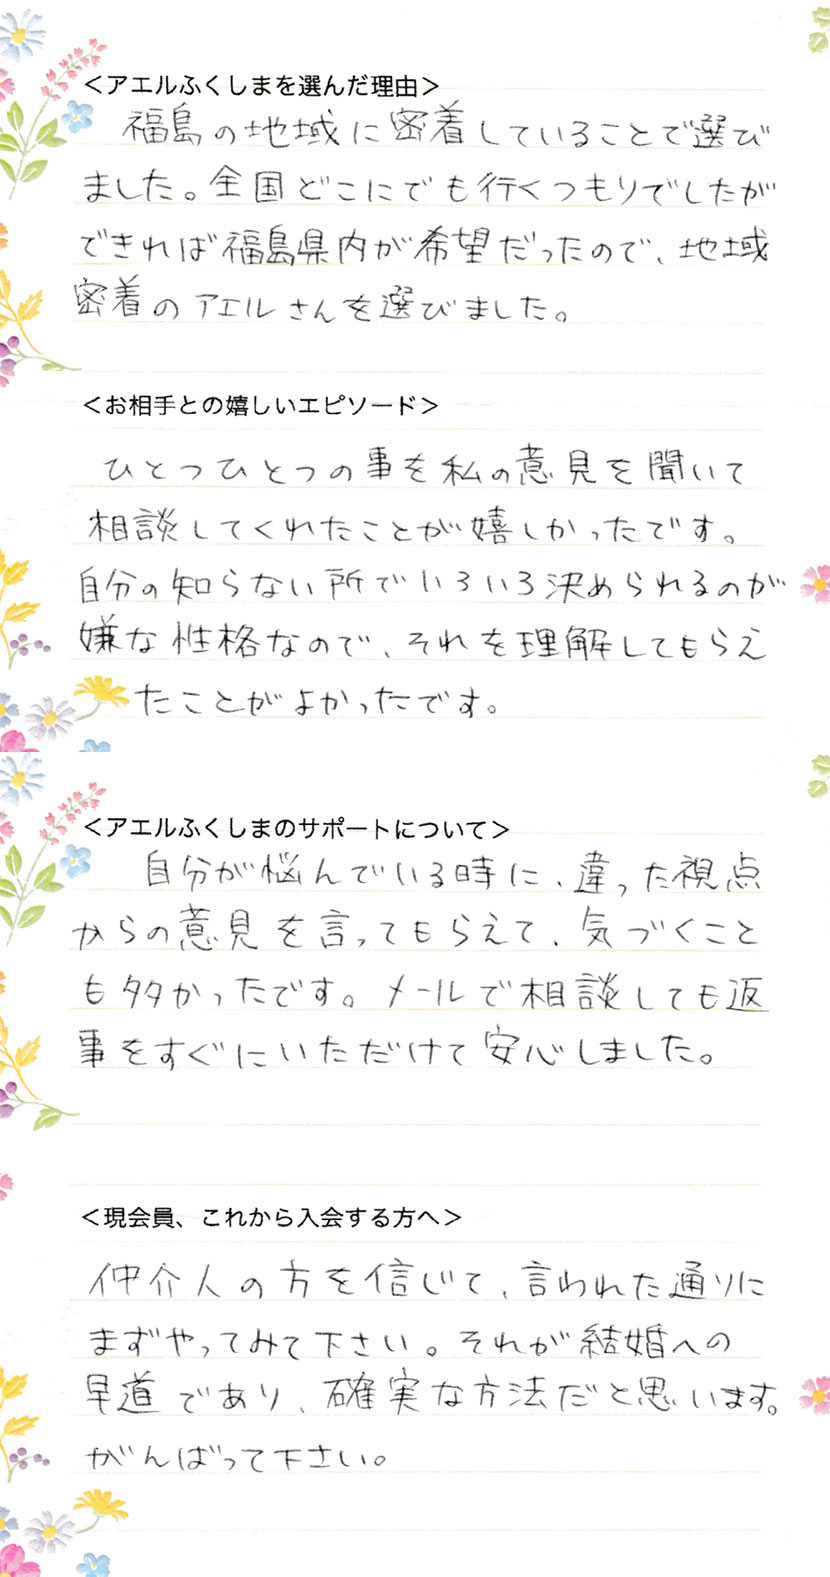 ＜アエルふくしまを選んだ理由＞
福島の地域に密着していることで選び
ました。全国どこにでも行くつもりでしたが
できれば福島県内が希望だったので、地域
密着のアエルさんを選びました。
＜お相手との嬉しいエピソード＞
ひとつひとつの事を私の意見を聞いて
相談してくれたことが嬉しかったです。
自分の知らない所でいろいろ決められるのが
嫌な性格なので、それを理解してもらえ
たことがよかったです。
＜アエルふくしまのサポートについて＞
自分が悩んでいる時に、違った視点
からの意見を言ってもらえて、気づくこと
も多かったです。メールで相談しても返
事をすぐにいただけて安心しました。
＜現会員、これから入会する方へ＞
仲介人の方を信じて、言われた通りに
まずやってみて下さい。それが結婚への
早道であり、確実な方法だと思います。
がんばって下さい。